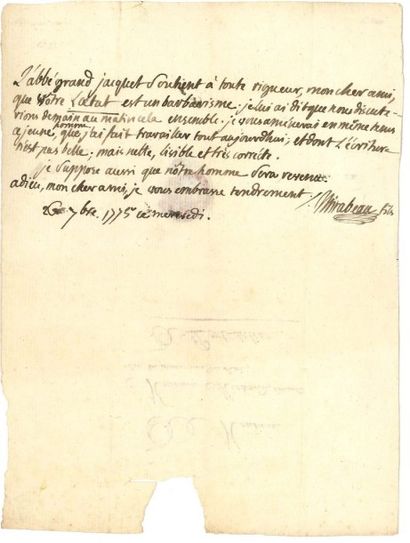 L'abbé grand jacquet soutient à toute rigueur, mon cher ami,
que votre L'œtat est un barbarisme. je lui ai dit que nous discute-
rions demain au matin cela ensemble. je vous amenerai en même tems
ce jeune homme que j'ai fait travailler tout aujourdhui, et dont L'écriture
n'est pas belle; mais nette, lisible et très correcte.
je suppose aussi que nôtre homme sera revenu.
adieu, mon cher ami, je vous embrasse tendrement. Mirabeau fils
7bre. 1775 ce mercredi.